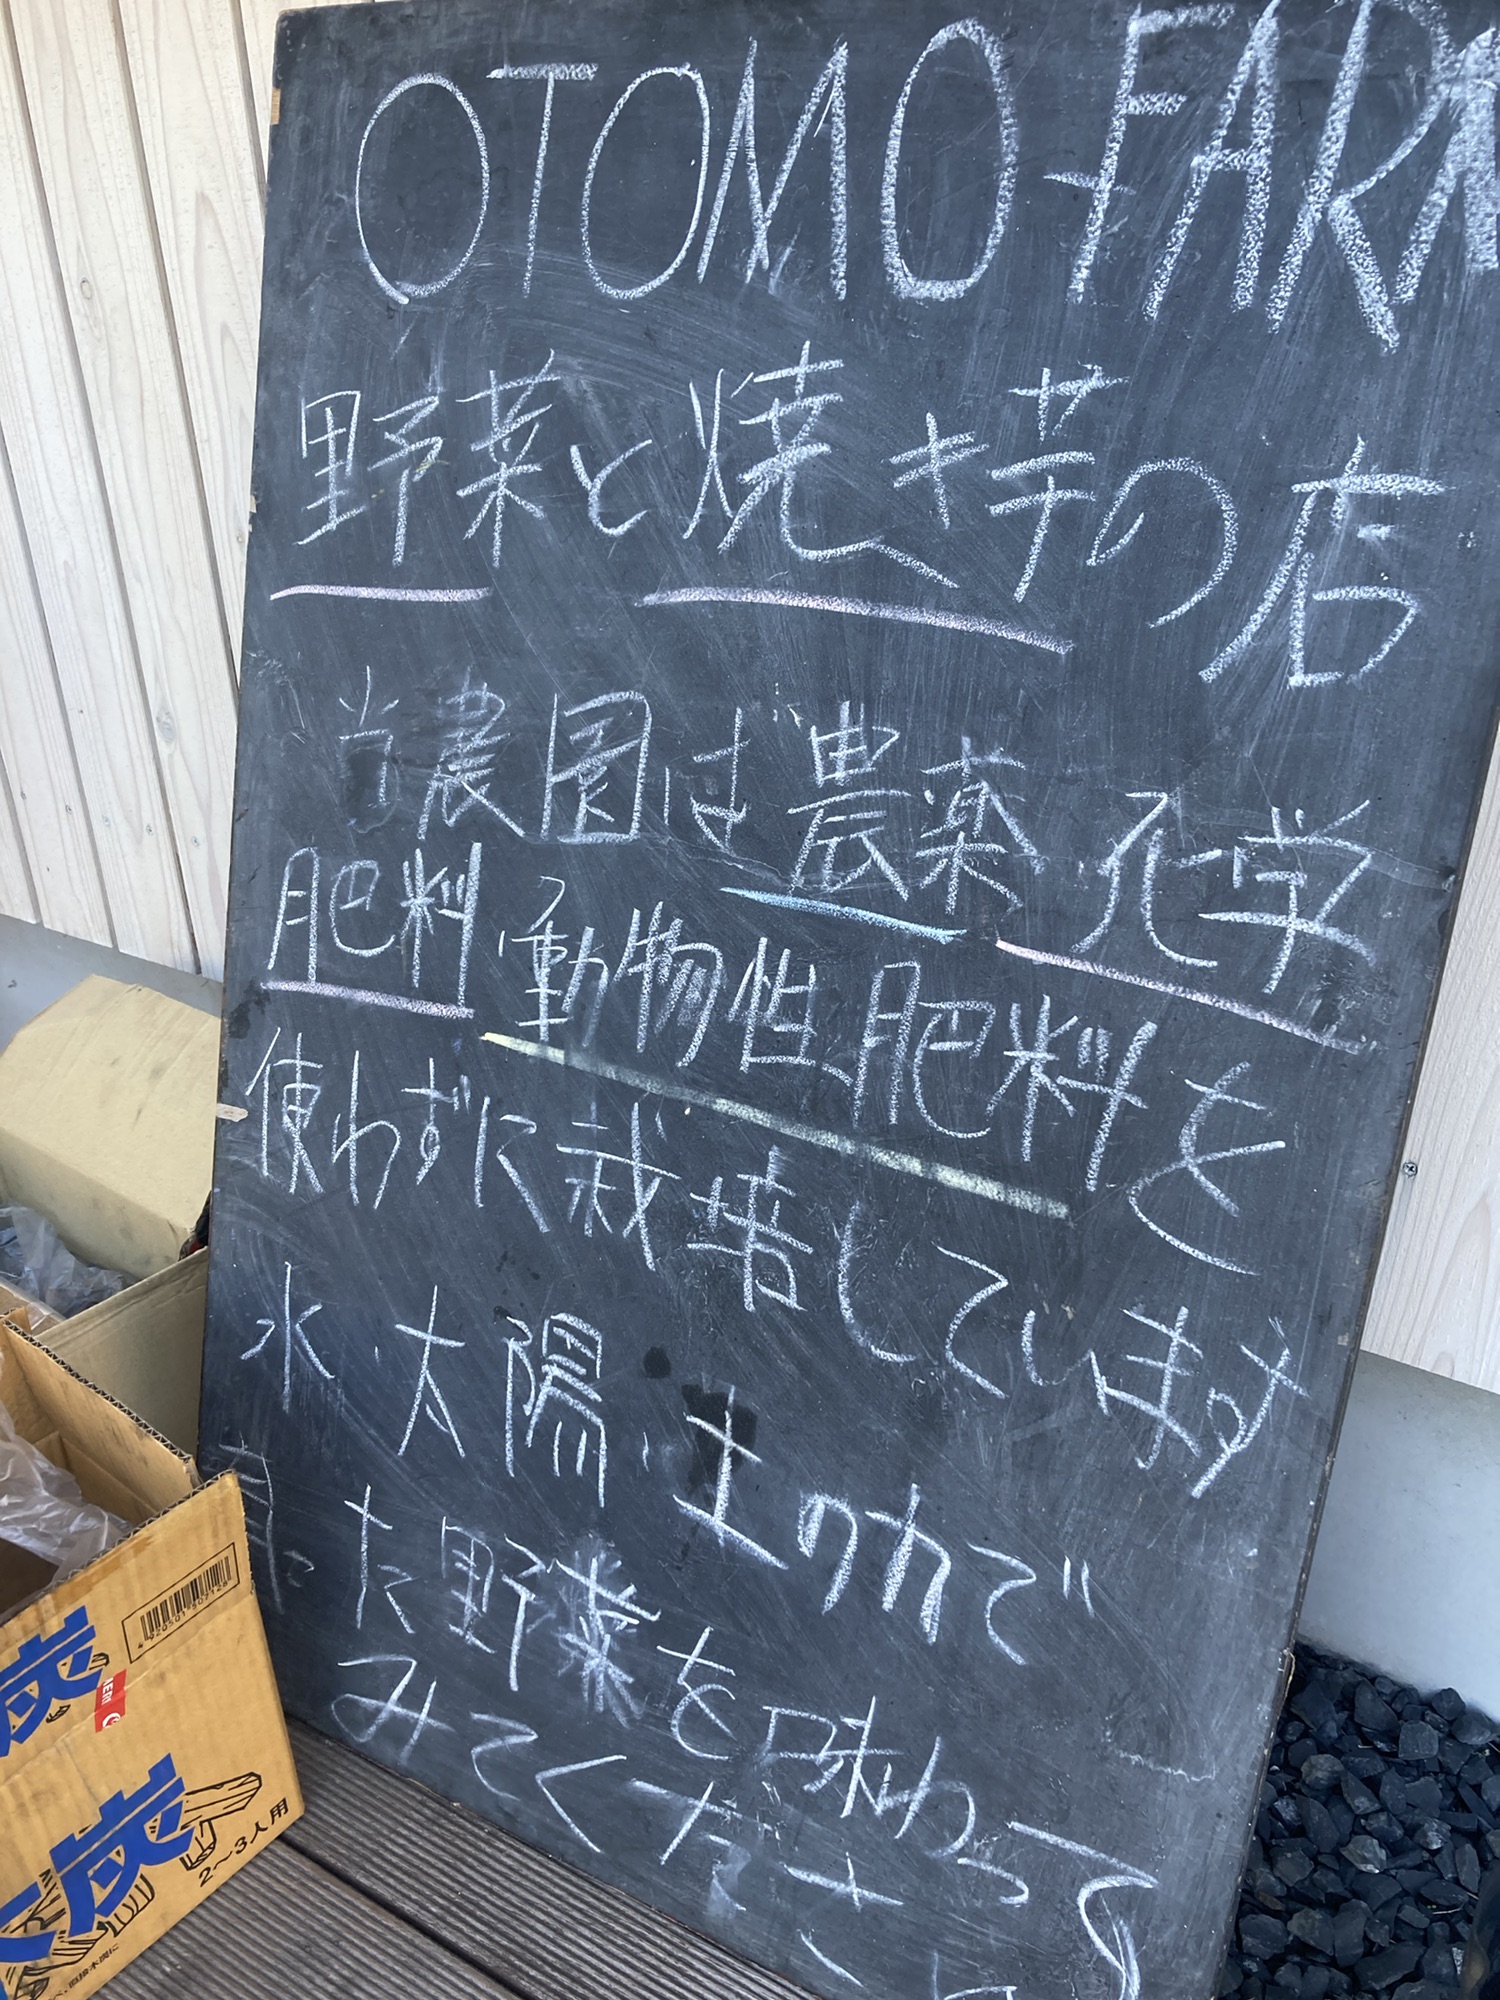 OTOMO FARM
野菜と焼き芋の店
当農園は農薬 化学
肥料 動物性肥料を
使わずに栽培しています
水・太陽・土の力で
育った野菜を味わって
みてください
4 920501 902128
炭
炭
2〜3人用